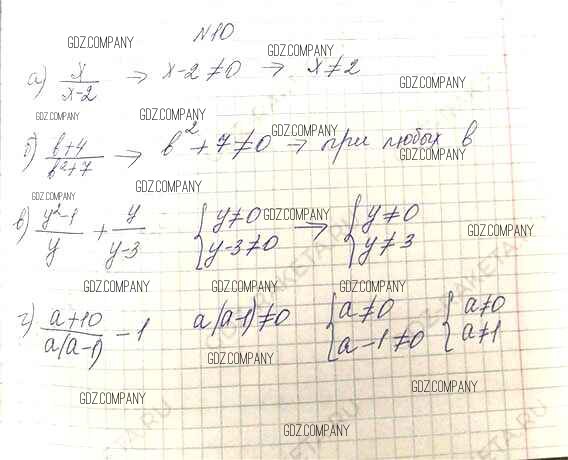 N10
GDZ.COMPANY GDZ.COMPANY
а) x/(x-2) → x-2≠0 → x≠2
GDZ.COMPANY
GDZ.COMPANY GDZ.COMPANY
GDZ.COMPANY
б) (b+4)/(b²+7) → b²+7≠0 → при любых b
GDZ.COMPANY
GDZ.COMPANY
GDZ.COMPANY
GDZ.COMPANY
в) (y²-1)/y + y/(y-3) { y≠0 y-3≠0 → { y≠0 y≠3
GDZ.COMPANY
GDZ.COMPANY GDZ.COMPANY GDZ.COMPANY
г) (a+10)/(a(a-1)) - 1 a(a-1)≠0 { a≠0 a-1≠0 { a≠0 a≠1
GDZ.COMPANY
GDZ.COMPANY
GDZ.COMPANY
GDZ.COMPANY